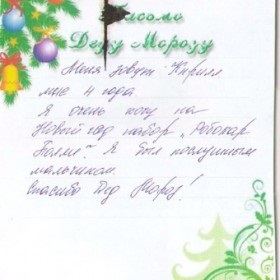 Письмо
Деду Морозу
Меня зовут Кирилл
мне 4 года.
Я очень хочу на
Новый год набор "Робокар
Полли". Я был послушным
мальчиком.
Спасибо Дед Мороз!